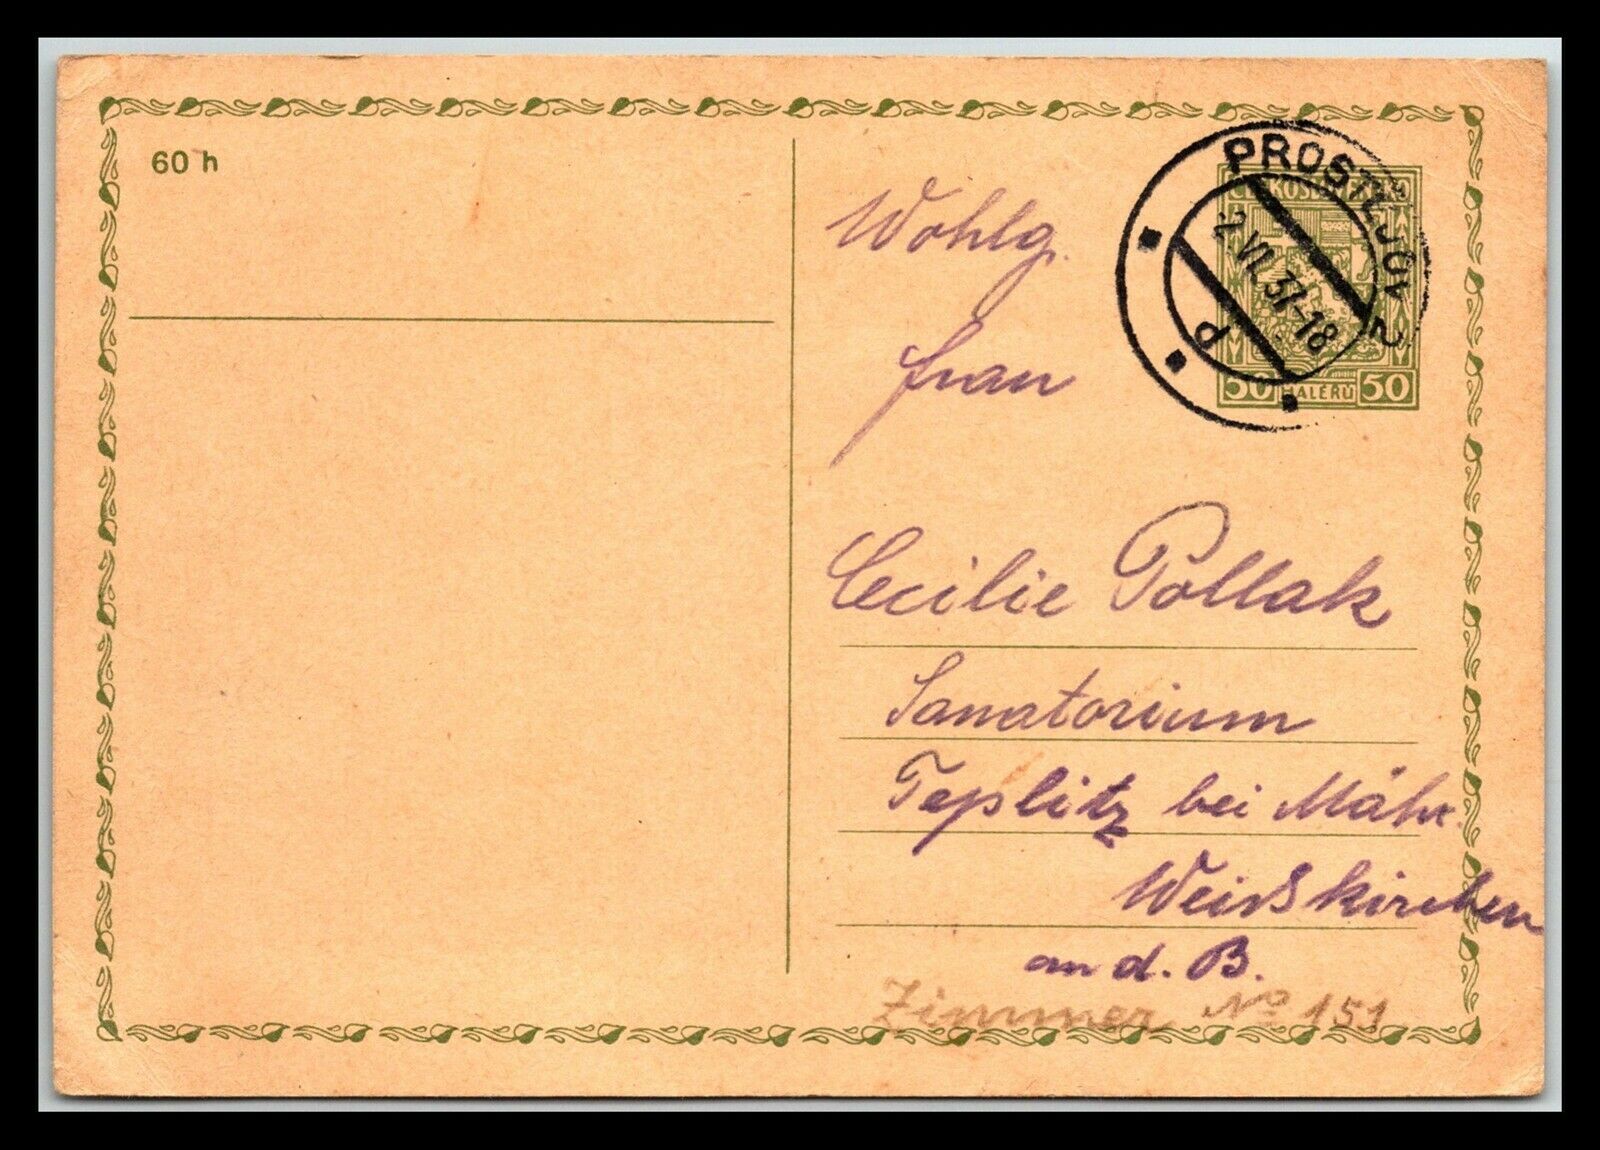 60 h
PROSTĚJOV 2
ČESKOSLOVENSKO
-2.VII.37-18
P
50 HALÉŘŮ 50
Wohlg.
Frau
Cecilie Pollak
Sanatorium
Teplitz bei Mähr.
Weisskirchen
an d. B.
Zimmer No 151